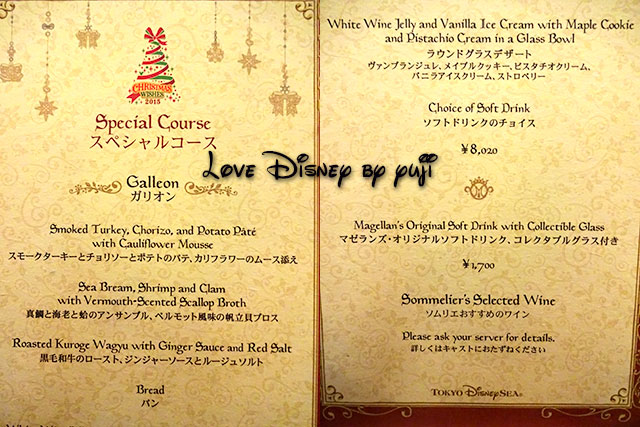 CHRISTMAS
WISHES
2015
Special Course
スペシャルコース
Galleon
ガリオン
Smoked Turkey, Chorizo, and Potato Pâté
with Cauliflower Mousse
スモークターキーとチョリソーとポテトのパテ、カリフラワーのムース添え
Sea Bream, Shrimp and Clam
with Vermouth-Scented Scallop Broth
真鯛と海老と蛤のアンサンブル、ベルモット風味の帆立貝ブロス
Roasted Kuroge Wagyu with Ginger Sauce and Red Salt
黒毛和牛のロースト、ジンジャーソースとルージュソルト
Bread
パン
White Wine Jelly and Vanilla Ice Cream with Maple Cookie
and Pistachio Cream in a Glass Bowl
ラウンドグラスデザート
ヴァンブランジュレ、メイプルクッキー、ピスタチオクリーム、
バニラアイスクリーム、ストロベリー
Choice of Soft Drink
ソフトドリンクのチョイス
¥8,020
Magellan's Original Soft Drink with Collectible Glass
マゼランズ・オリジナルソフトドリンク、コレクタブルグラス付き
¥1,700
Sommelier's Selected Wine
ソムリエおすすめのワイン
Please ask your server for details.
詳しくはキャストにおたずねください
TOKYO DisneySEA®
Love Disney by yuji